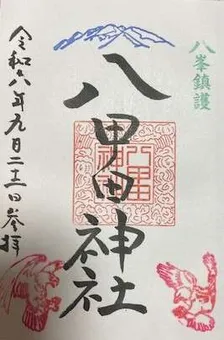 八峯鎮護
八甲田神社
令和六年九月二十三日参拝